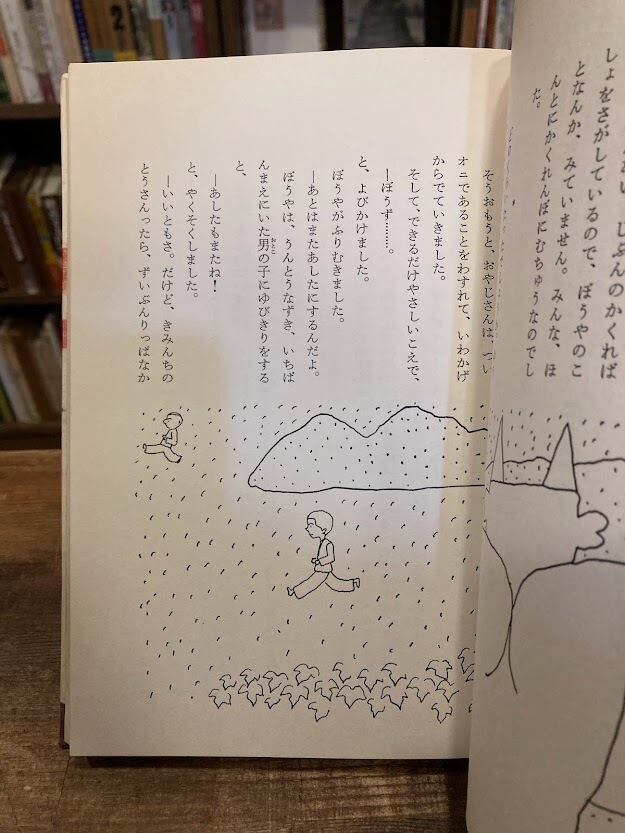 しょをさがしているので、ぼうやのこ
となんか、みていません。みんな、ほ
んとにかくれんぼにむちゅうなのでし
た。
そうおもうと、おやじさんは、つい
オニであることをわすれて、いわかげ
からでていきました。
そして、できるだけやさしいこえで、
―ぼうず………。
と、よびかけました。
ぼうやがふりむきました。
―あとはまたあしたにするんだよ。
ぼうやは、うんとうなずき、いちば
んまえにいた男の子にゆびきりをする
と、
―あしたもまたね!
と、やくそくしました。
―いいともさ。だけど、きみんちの
とうさんったら、ずいぶんりっぱなか